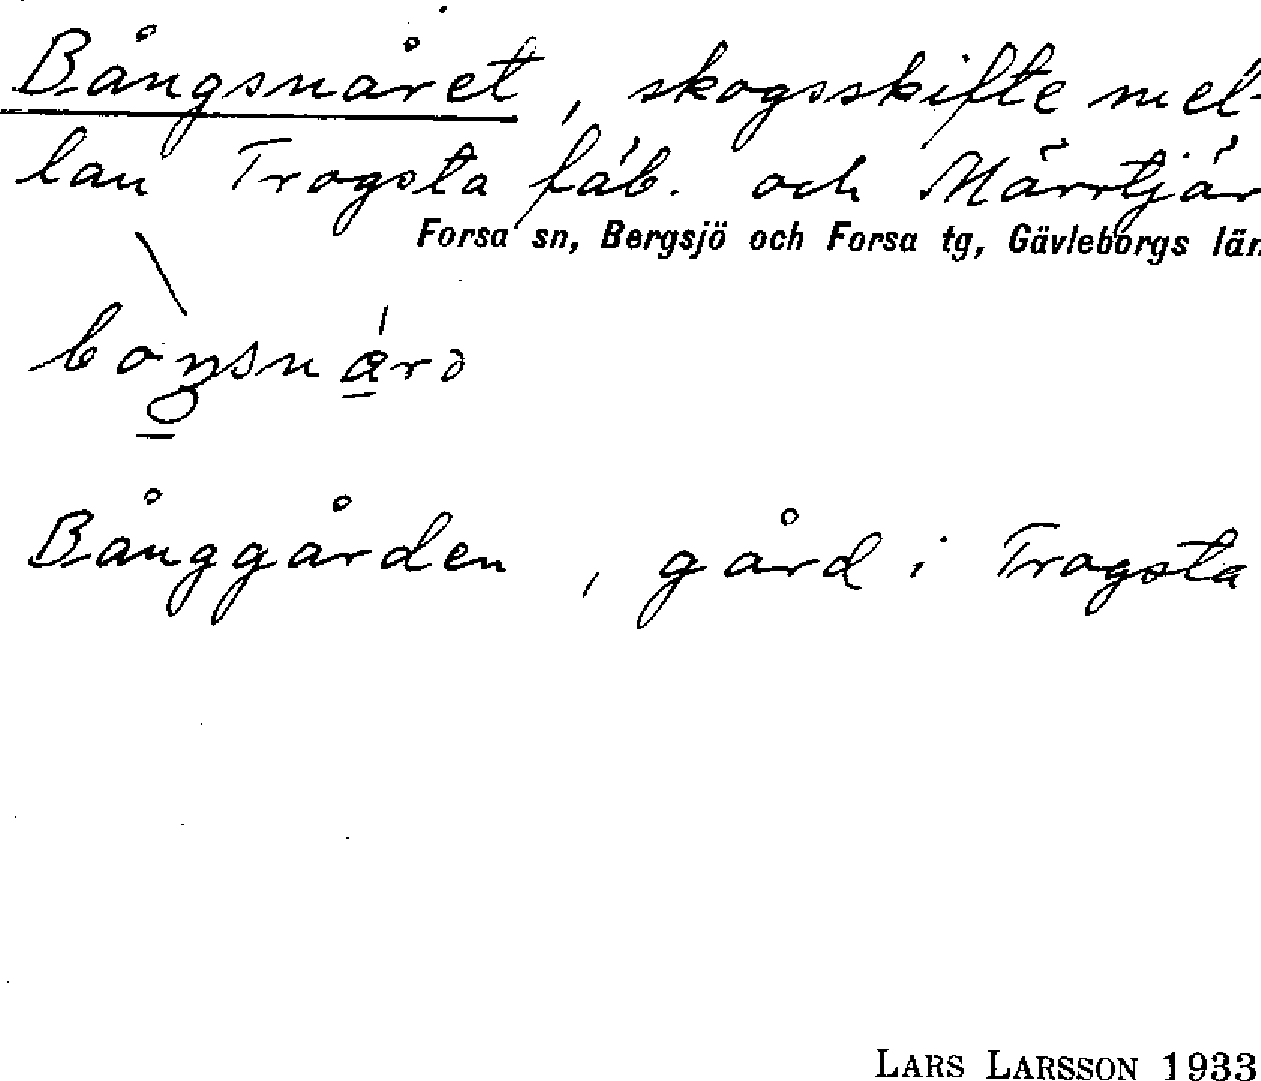 Bångsnåret, skogsskifte mel-
lan Trogsta fäb. och Märrtjär
Forsa sn, Bergsjö och Forsa tg, Gävleborgs län
Bånggården, gård i Trogsta
LARS LARSSON 1933